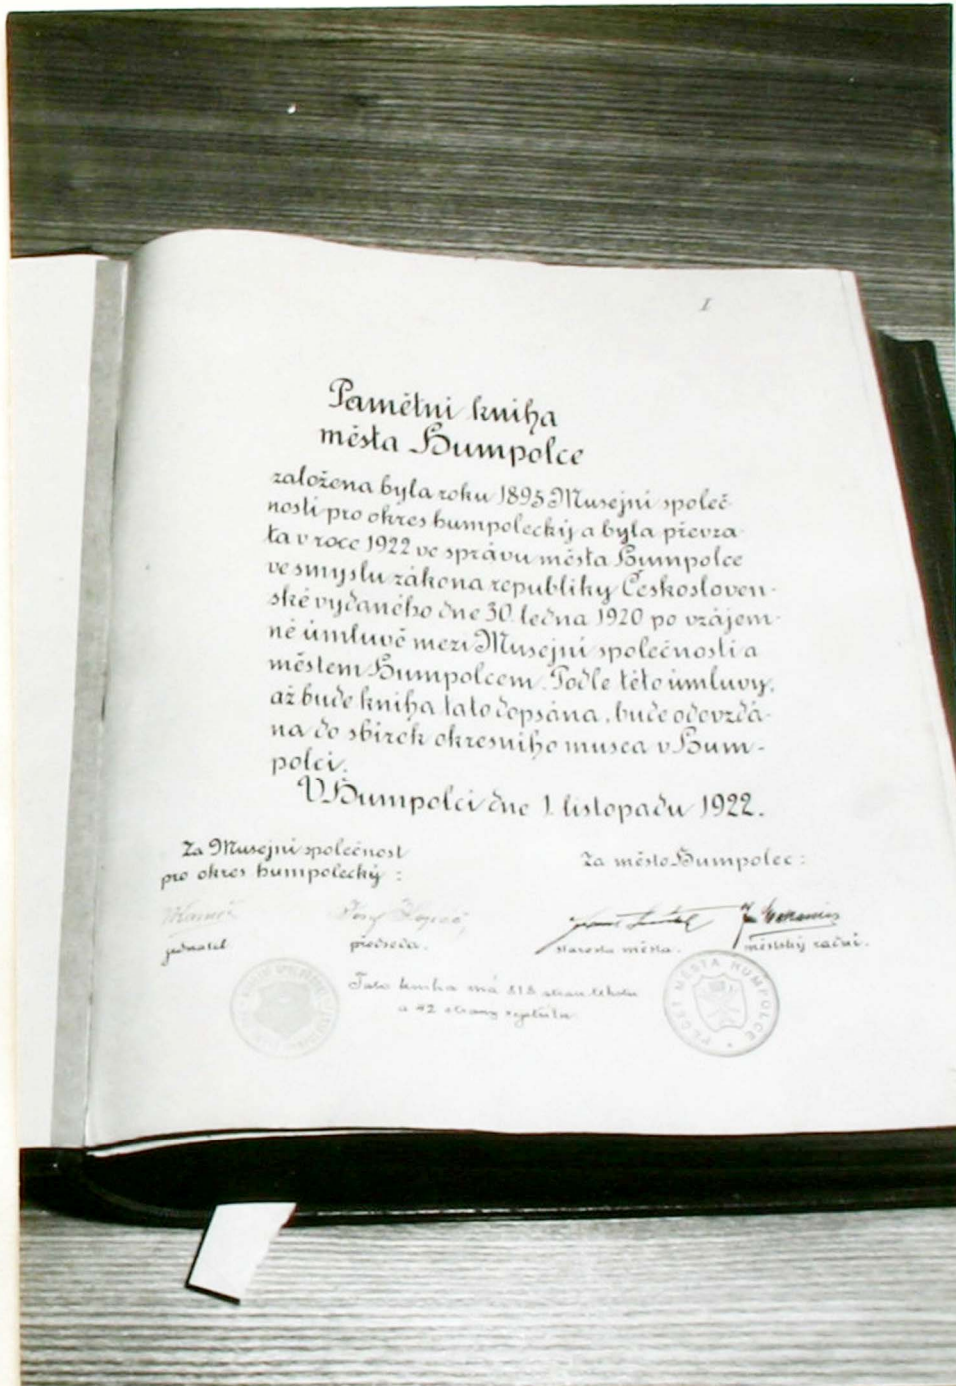 I
Pamětní kniha
města Humpolce
založena byla roku 1895 Musejní společ-
ností pro okres humpolecký a byla převza-
ta v roce 1922 ve správu města Humpolce
ve smyslu zákona republiky Českosloven-
ské vydaného dne 30. ledna 1920 po vzájem-
né úmluvě mezi Musejní společností a
městem Humpolcem. Podle této úmluvy,
až bude kniha tato dopsána, bude odevzdá-
na do sbírek okresního musea v Hum-
polci.
V Humpolci dne 1. listopadu 1922.
Za Musejní společnost
pro okres humpolecký:
Za město Humpolec:
jednatel
předseda.
starosta města.
městský radní.
Tato kniha má 818 stran textu
a 42 strany rejstříku
PEČEŤ MĚSTA HUMPOLCE